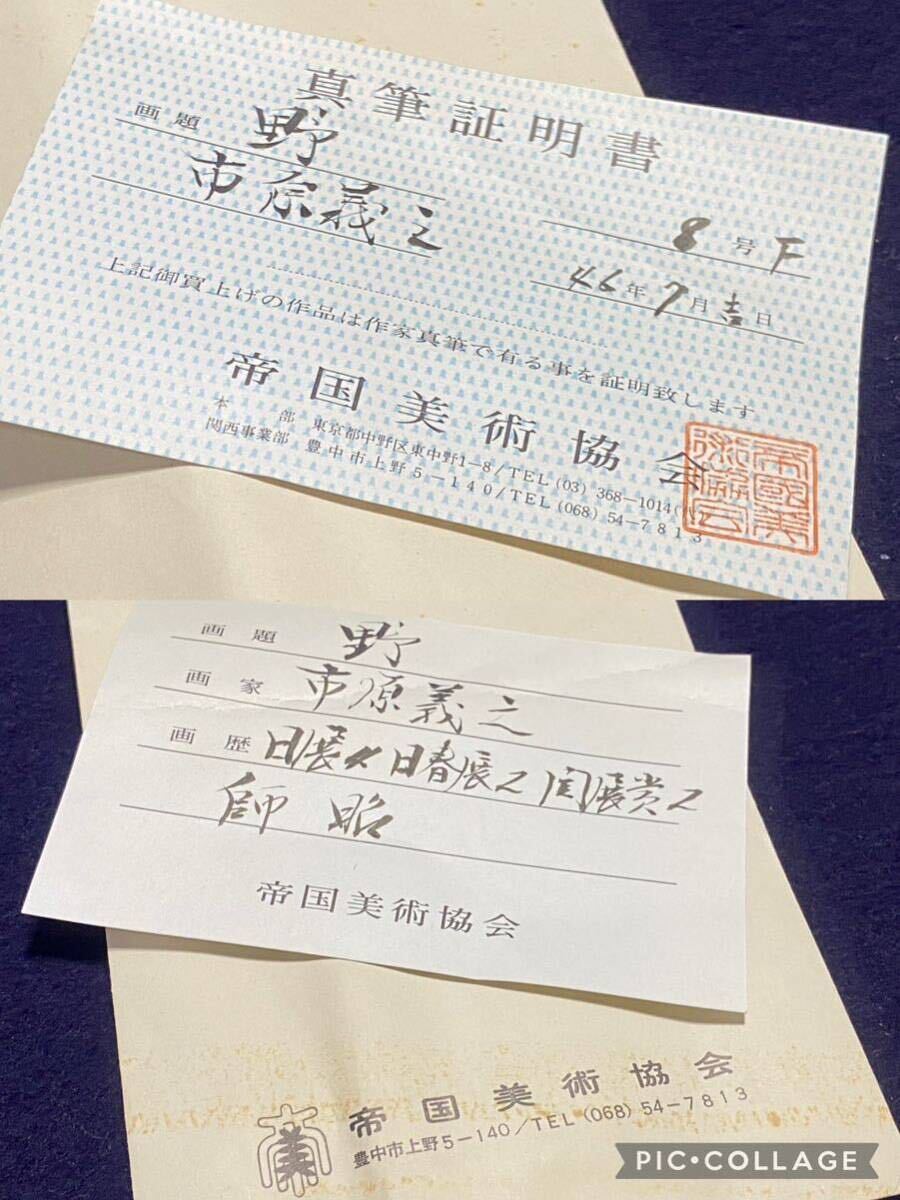 真筆証明書
画題 野
市原義之
8号F
46年7月吉日
上記御買上げの作品は作家真筆で有る事を証明致します
帝国美術協会
本部 東京都中野区東中野1-8/TEL (03) 368-1014(代)
関西事業部 豊中市上野5-140/TEL (068) 54-7813
帝国美術協会
画題 野
画家 市原義之
画歴 日展4 日春展2 関展賞2
師 昭
帝国美術協会
帝国美術協会
豊中市上野5-140/TEL (068) 54-7813
PIC•COLLAGE